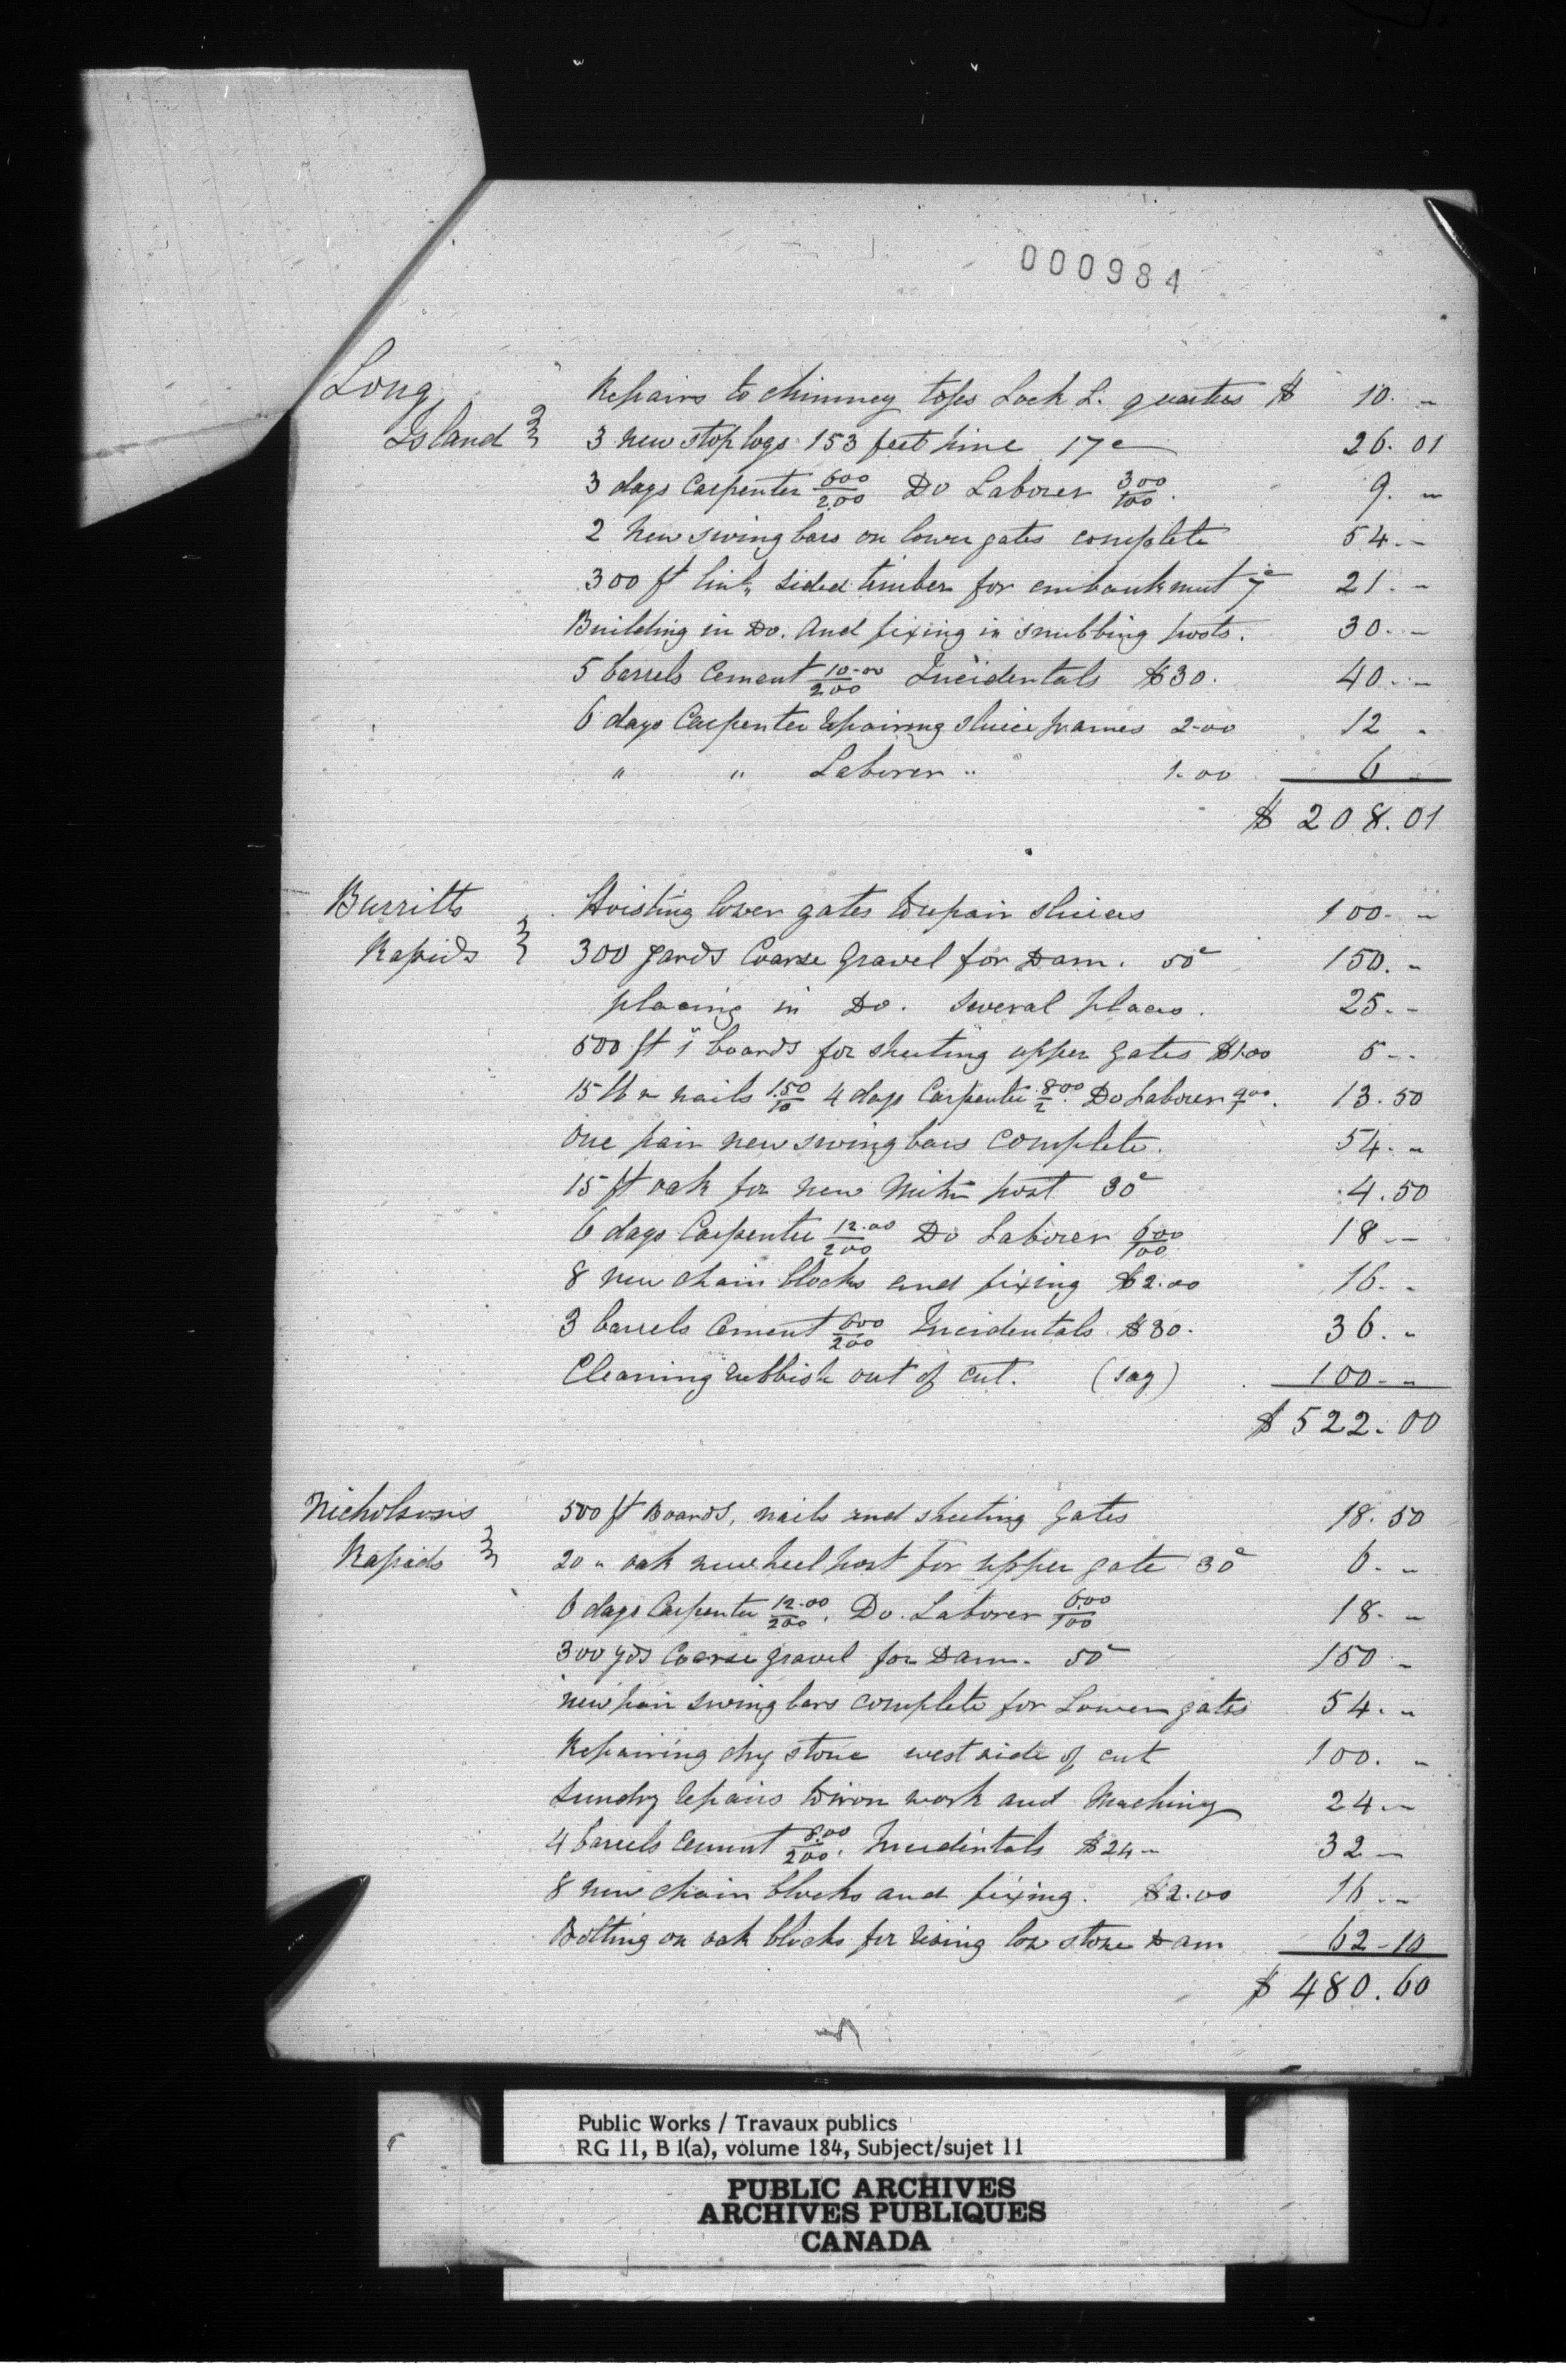 000984
Long Repairs to chimney tops Lock L. quarters $ 10. "
Island } 3 new stop logs 153 feet pine 17c 26.01
3 days Carpenter 600/200 Do Laborer 300/100. 9. "
2 new swing bars on lower gates complete 54. "
300 ft lin". sided timber for embankment 7c 21. "
Building in Do. and fixing in snubbing posts. 30. "
5 barrels Cement 10.00/200 Incidentals $30. 40. "
6 days Carpenter repairing sluice frames 2.00 12 "
" " Laborer " 1.00 6 "
$ 208.01
Burritts Hoisting lower gates to repair sluices 100. "
Rapids } 300 yards Coarse Gravel for Dam. 50c 150. "
placing in Do. several places. 25. "
500 ft 1" boards for sheeting upper gates $1.00 5. "
15 lb " nails 1.50/10 4 days Carpenter 8.00/2. Do Laborer 4.00/1. 13.50
One pair new swing bars complete. 54. "
15 ft oak for new mitre post 30c 4.50
6 days Carpenter 12.00/200 Do Laborer 600/100 18. "
8 new chain blocks and fixing $2.00 16. "
3 barrels Cement 600/200 Incidentals $30. 36. "
Cleaning rubbish out of cut. (say) 100. "
$ 522.00
Nicholsons 500 ft Boards, nails and sheeting gates 18.50
Rapids } 20 " oak new heel post for upper gate 30c 6. "
6 days Carpenter 12.00/200. Do. Laborer 6.00/100 18. "
300 yds Coarse gravel for Dam. 50c 150 "
new pair swing bars complete for Lower gates 54. "
Repairing dry stone west side of cut 100. "
Sundry repairs to iron work and Machinery 24. "
4 barrels Cement 8.00/200. Incidentals $24 " 32 "
8 new chain blocks and fixing. $2.00 16. "
Bolting on oak blocks for rising low stone Dam 62.10
$ 480.60
Public Works / Travaux publics
RG 11, B 1(a), volume 184, Subject/sujet 11
PUBLIC ARCHIVES
ARCHIVES PUBLIQUES
CANADA